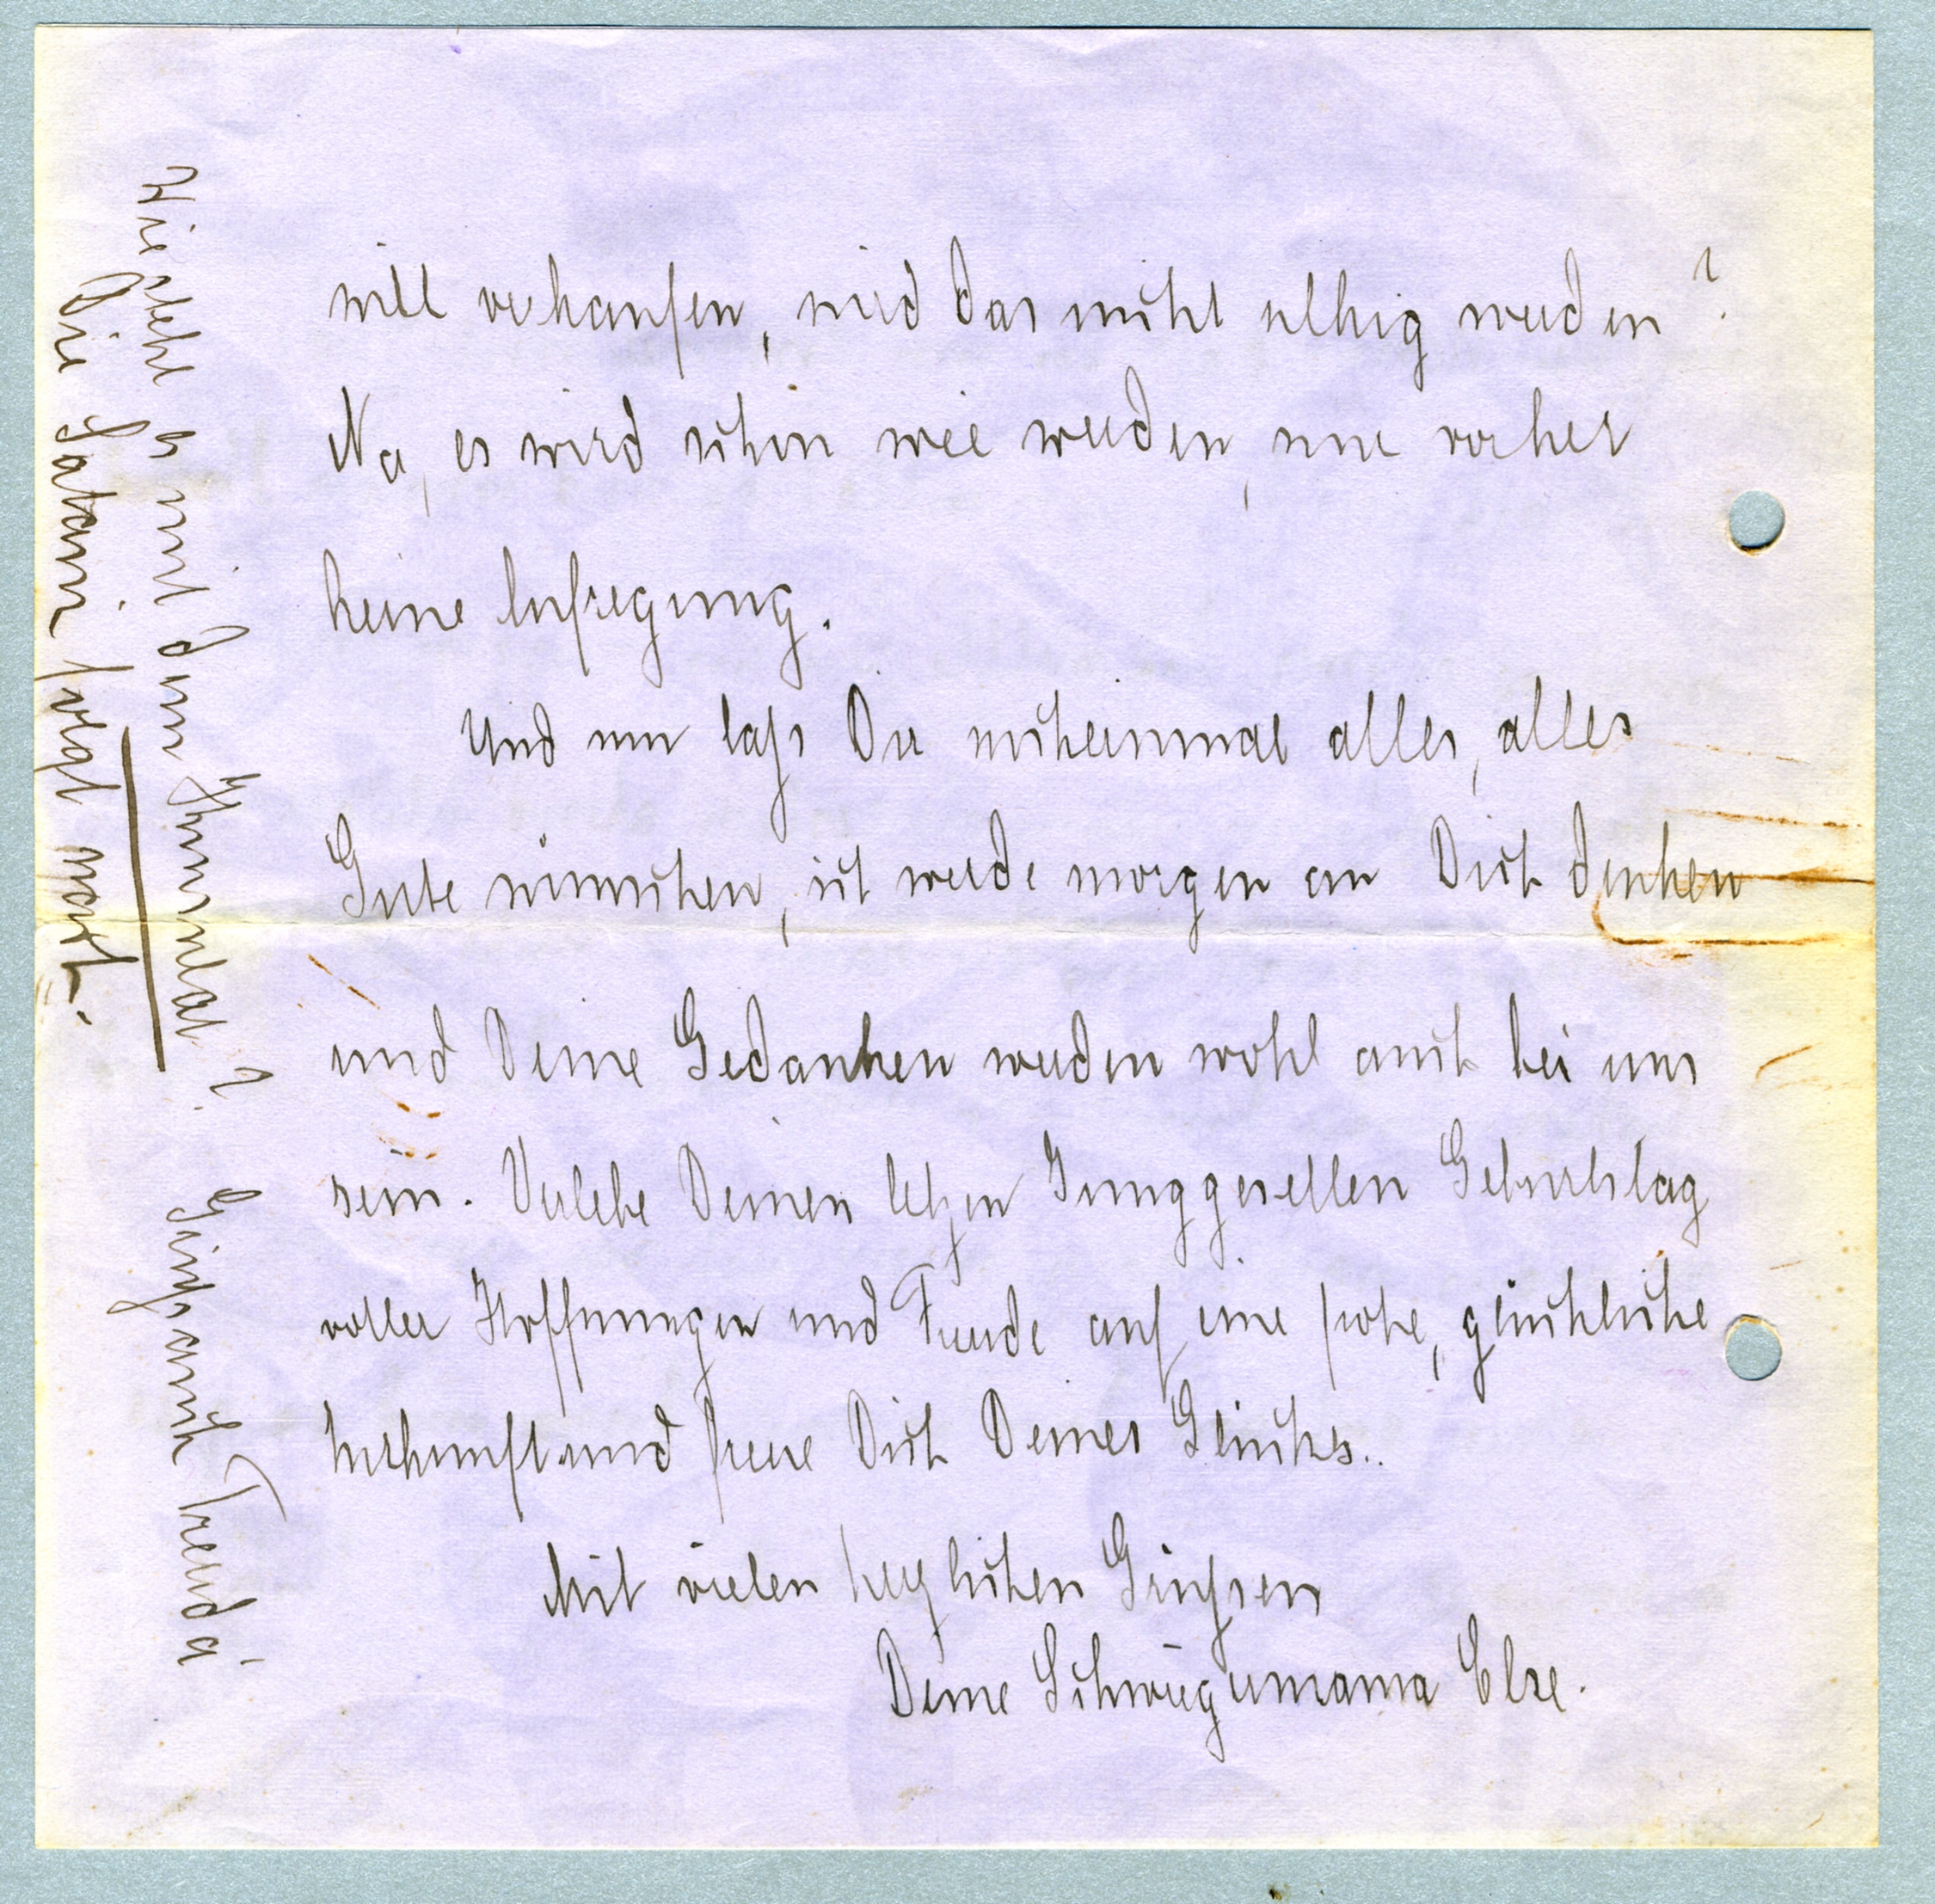 will verkaufen, wird das nicht ulkig werden?
Na, es wird schon wie werden, nur vorher
keine Aufregung.
Und nun lass Dir nocheinmal alles, alles
Gute wünschen, ich werde morgen an Dich denken
und Deine Gedanken werden wohl auch bei uns
sein. Verlebe Deinen letzten Junggesellen Geburtstag
voller Hoffnungen und Freude auf eine frohe, glückliche
Zukunft und freue Dich Deines Glücks..
Mit vielen herzlichen Grüssen
Deine Schwiegermama Else.
Wie steht es mit dem ? Grüss auch Trenda
Die folgt nach.